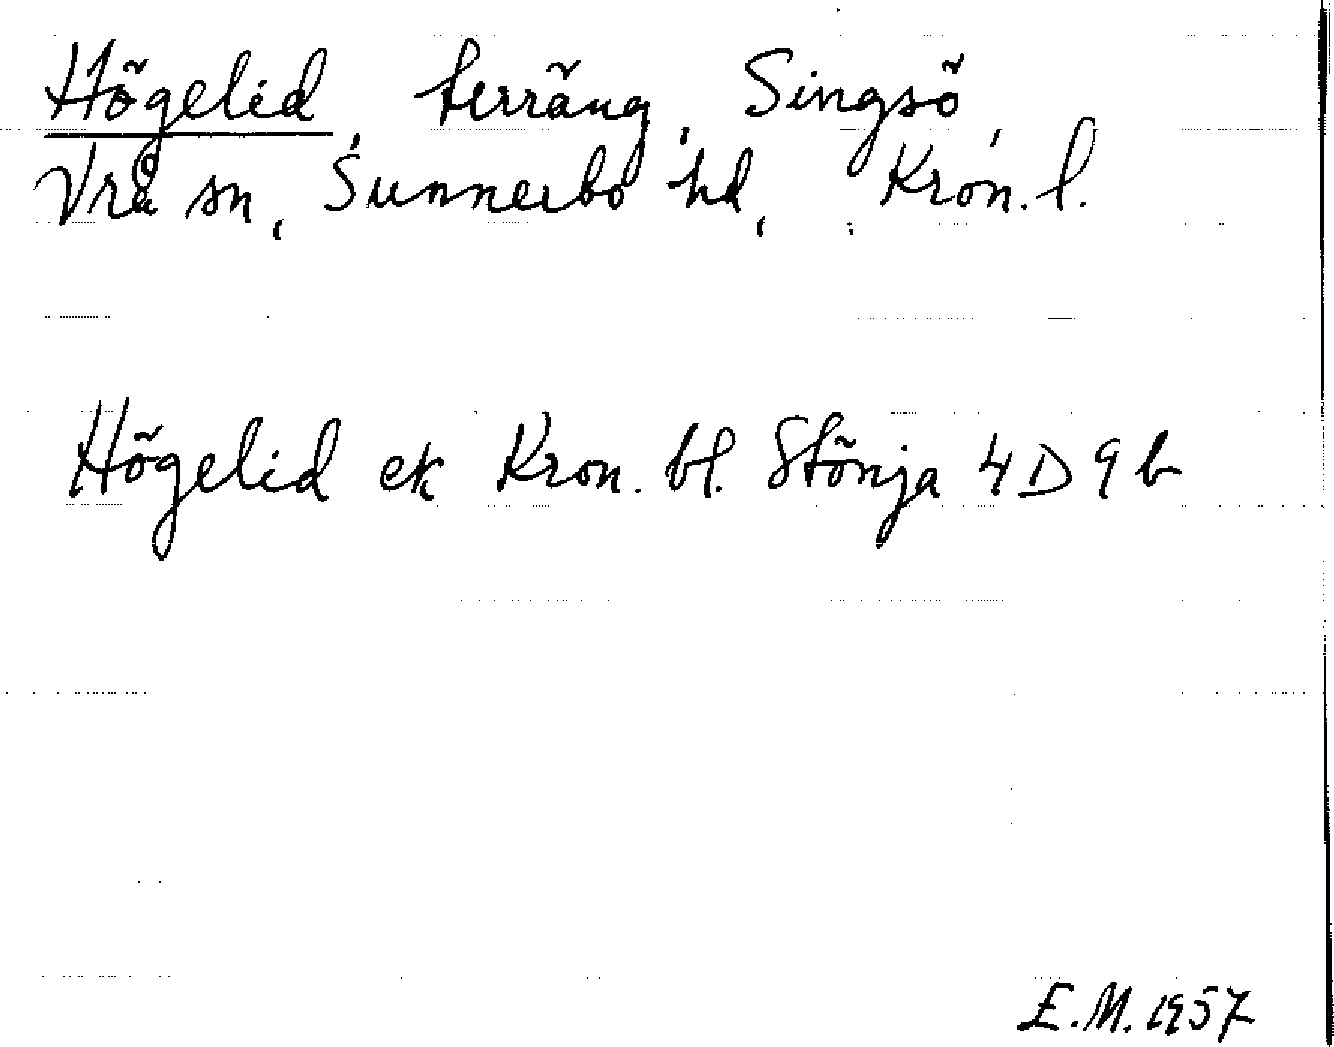 Högelid, terräng, Singsö,
Vrå sn, Sunnerbo hd, Kron. l.
Högelid ek Kron. bl. Stönja 4 D 9 b
E.M. 1957